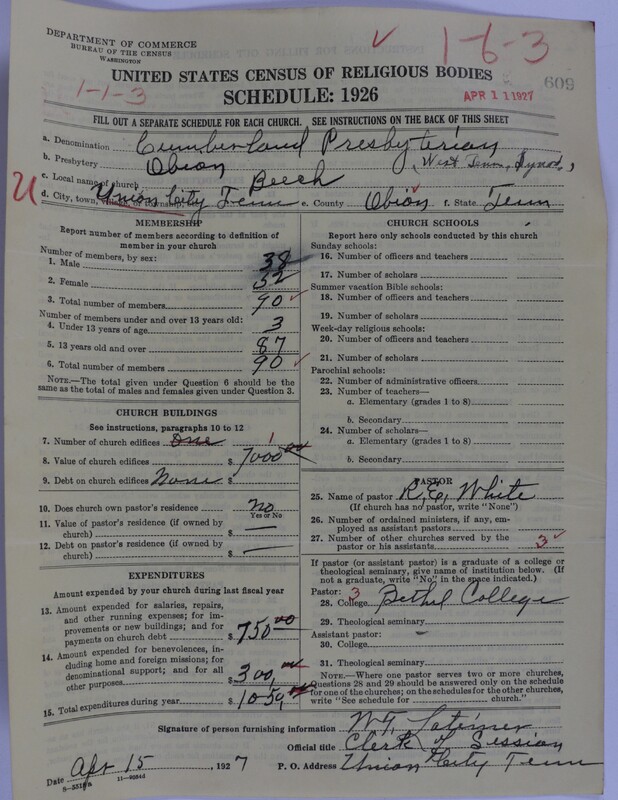 DEPARTMENT OF COMMERCE
BUREAU OF THE CENSUS
WASHINGTON
1-6-3
1-1-3
609
UNITED STATES CENSUS OF RELIGIOUS BODIES
SCHEDULE: 1926
APR 11 1927
FILL OUT A SEPARATE SCHEDULE FOR EACH CHURCH. SEE INSTRUCTIONS ON THE BACK OF THIS SHEET
a. Denomination Cumberland Presbyterian
b. Presbytery Obion West Tenn, Synod,
c. Local name of church Beech
U d. City, town, village, or township, etc. Union City Tenn e. County Obion f. State Tenn
MEMBERSHIP
Report number of members according to definition of
member in your church
Number of members, by sex:
1. Male 38
2. Female 52
3. Total number of members 90
Number of members under and over 13 years old:
4. Under 13 years of age 3
5. 13 years old and over 87
6. Total number of members 90
NOTE.—The total given under Question 6 should be the
same as the total of males and females given under Question 3.
CHURCH BUILDINGS
See instructions, paragraphs 10 to 12
7. Number of church edifices One 1
8. Value of church edifices $ 7000 00
9. Debt on church edifices None $
10. Does church own pastor's residence? No
Yes or No
11. Value of pastor's residence (if owned by
church) $ —
12. Debt on pastor's residence (if owned by
church) $ —
EXPENDITURES
Amount expended by your church during last fiscal year
13. Amount expended for salaries, repairs,
and other running expenses; for im-
provements or new buildings; and for
payments on church debt $ 750 00
14. Amount expended for benevolences, in-
cluding home and foreign missions; for
denominational support; and for all
other purposes $ 300,
15. Total expenditures during year $ 1050,
CHURCH SCHOOLS
Report here only schools conducted by this church
Sunday schools:
16. Number of officers and teachers
17. Number of scholars
Summer vacation Bible schools:
18. Number of officers and teachers
19. Number of scholars
Week-day religious schools:
20. Number of officers and teachers
21. Number of scholars
Parochial schools:
22. Number of administrative officers
23. Number of teachers—
a. Elementary (grades 1 to 8)
b. Secondary
24. Number of scholars—
a. Elementary (grades 1 to 8)
b. Secondary
PASTOR
25. Name of pastor R, E, White
(If church has no pastor, write "None")
26. Number of ordained ministers, if any, em-
ployed as assistant pastors
27. Number of other churches served by the
pastor or his assistants 3
If pastor (or assistant pastor) is a graduate of a college or
theological seminary, give name of institution below. (If
not a graduate, write "No" in the space indicated.)
Pastor: 3
28. College Bethel College
29. Theological seminary
Assistant pastor:
30. College
31. Theological seminary
NOTE.—Where one pastor serves two or more churches,
Questions 28 and 29 should be answered only on the schedule
for one of the churches; on the schedules for the other churches,
write "See schedule for church."
Signature of person furnishing information W. G. Latimer
Official title Clerk of Session
Date Apr 15, 1927 P. O. Address Union City Tenn